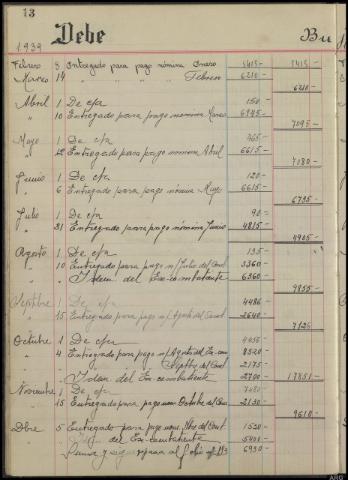 13
1939 Debe Bu
Febrero 8 Entregado para pago nómina Enero 1415- 1415-
Marzo 14 " " " " Febrero 6210- 6210-
Abril 1 De c/a 150-
" 10 Entregado para pago nómina Marzo 6945- 7095-
Mayo 1 De c/a 465-
" Entregado para pago nómina Abril 6615- 7080-
Junio 1 De c/a 120-
" 6 Entregado para pago nómina Mayo 6615- 6735-
Julio 1 De c/a 90-
" 31 Entregado para pago nómina Junio 4815- 4905-
Agosto 1 De c/a 135-
" 10 Entregado para pago n/ Julio del 3360-
" " Idem del Ex-combatiente 6360- 9855-
Septbre 1 De c/a 4486-
" 15 Entregado para pago n/ Agosto del 2640- 7126-
Octubre 1 De c/a
" 4 Entregado para pago n/ Agosto del Ex-com 8520-
Septbre del 2175-
" Idem del Ex-combatiente 2700- 17851-
Noviembre 1 De c/a 7480-
" 15 Entregado para pago nom. Octubre del 2130- 9610-
Dbre 5 Entregado para pago nom. Nbre del 1530-
del Ex-combatiente 5401-
Suma y sigue al folio 6930-
ARG